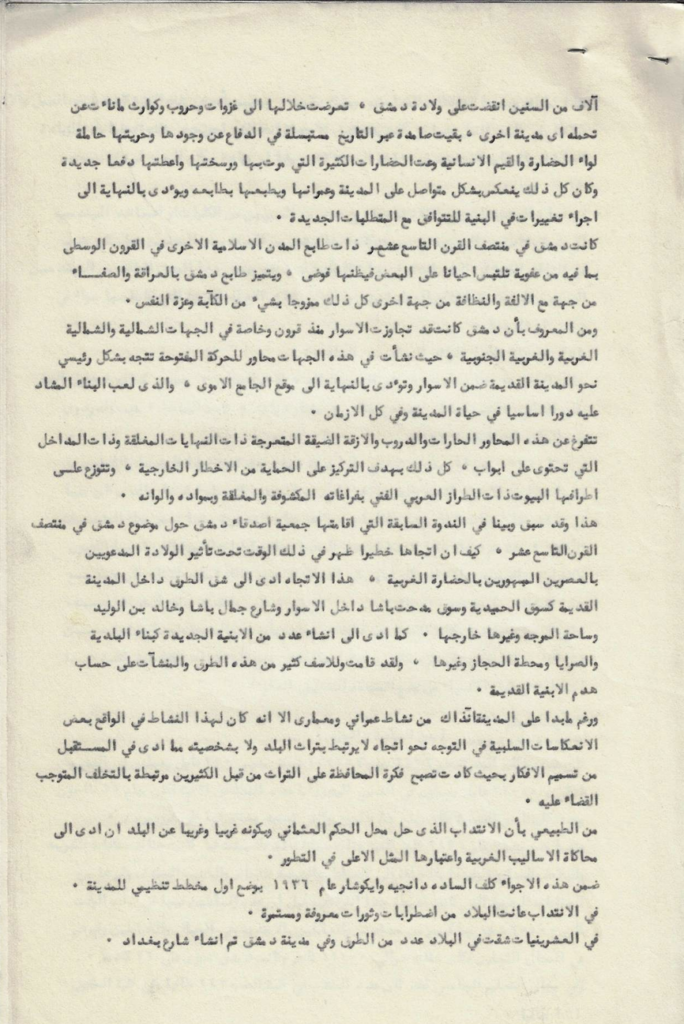 آلاف من السنين انقضت على ولادة دمشق • تعرضت خلالها الى غزوات وحروب وكوارث ماناءت عن
تحمله اى مدينة اخرى • بقيت صامدة عبر التاريخ مستبسلة في الدفاع عن وجودها وحريتها حاملة
لواء الحضارة والقيم الانسانية وعت الحضارات الكثيرة التي مرت بها ورسختها واعطتها دفعا جديدة
وكان كل ذلك ينعكس بشكل متواصل على المدينة وعمرانها ويطبعها بطابعه ويؤدى بالنهاية الى
اجراء تغييرات في البنية للتتوافق مع المتطلبات الجديدة •
كانت دمشق في منتصف القرن التاسع عشر ذات طابع المدن الاسلامية الاخرى في القرون الوسطى
بما فيه من عفوية تلتبس احيانا على البعض فيظنها فوضى • ويتميز طابع دمشق بالعراقة والصفاء
من جهة مع الالفة والنظافة من جهة اخرى كل ذلك ممزوجا بشيء من الكآبة وعزة النفس •
ومن المعروف بأن دمشق كانت قد تجاوزت الاسوار منذ قرون وخاصة في الجهات الشمالية والشمالية
الغربية والغربية الجنوبية • حيث نشأت في هذه الجهات محاور للحركة المفتوحة تتجه بشكل رئيسي
نحو المدينة القديمة ضمن الاسوار وتؤدى بالنهاية الى موقع الجامع الاموى • والذى لعب البناء المشاد
عليه دورا اساسيا في حياة المدينة وفي كل الازمان •
تتفرع عن هذه المحاور الحارات والدروب والازقة الضيقة المتعرجة ذات النهايات المغلقة وذات المداخل
التي تحتوى على ابواب • كل ذلك بهدف التركيز على الحماية من الاخطار الخارجية • وتتوزع على
اطرافها البيوت ذات الطراز العربي الغني بفراغاته المكشوفة والمغلقة وبمواده والوانه •
هذا وقد سبق وبينا في الندوة السابقة التي اقامتها جمعية اصدقاء دمشق حول موضوع دمشق في منتصف
القرن التاسع عشر • كيف ان اتجاها خطيرا ظهر في ذلك الوقت تحت تأثير الولادة المدعويين
بالعصرين المبهورين بالحضارة الغربية • هذا الاتجاه ادى الى شق الطرق داخل المدينة
القديمة كسوق الحميدية وسوق مدحت باشا داخل الاسوار وشارع جمال باشا وخالد بن الوليد
وساحة المرجه وغيرها خارجها • كما ادى الى انشاء عدد من الابنية الجديدة كبناء البلدية
والصرايا ومحطة الحجاز وغيرها • ولقد قامت وللاسف كثير من هذه الطرق والمنشآت على حساب
هدم الابنية القديمة •
ورغم مابدا على المدينة آنذاك من نشاط عمراني ومعمارى الا انه كان لهذا النشاط في الواقع بعض
الانعكاسات السلبية في التوجه نحو اتجاه لايرتبط بتراث البلد ولا بشخصيته مما ادى في المستقبل
من تسميم الافكار بحيث كادت تصبح فكرة المحافظة على التراث من قبل الكثيرين مرتبطة بالتخلف المتوجب
القضاء عليه •
من الطبيعي بأن الانتداب الذى حل محل الحكم العثماني وبكونه غربيا وغريبا عن البلد ان ادى الى
محاكاة الاساليب الغربية واعتبارها المثل الاعلى في التطور •
ضمن هذه الاجواء كلف الساده دانجيه وايكوشار عام ١٩٣٦ بوضع اول مخطط تنظيمي للمدينة •
في الانتداب عانت البلاد من اضطرابات وثورات معروفة ومستمرة •
في العشرينيات شقت في البلاد عدد من الطرق وفي مدينة دمشق تم انشاء شارع بغداد •